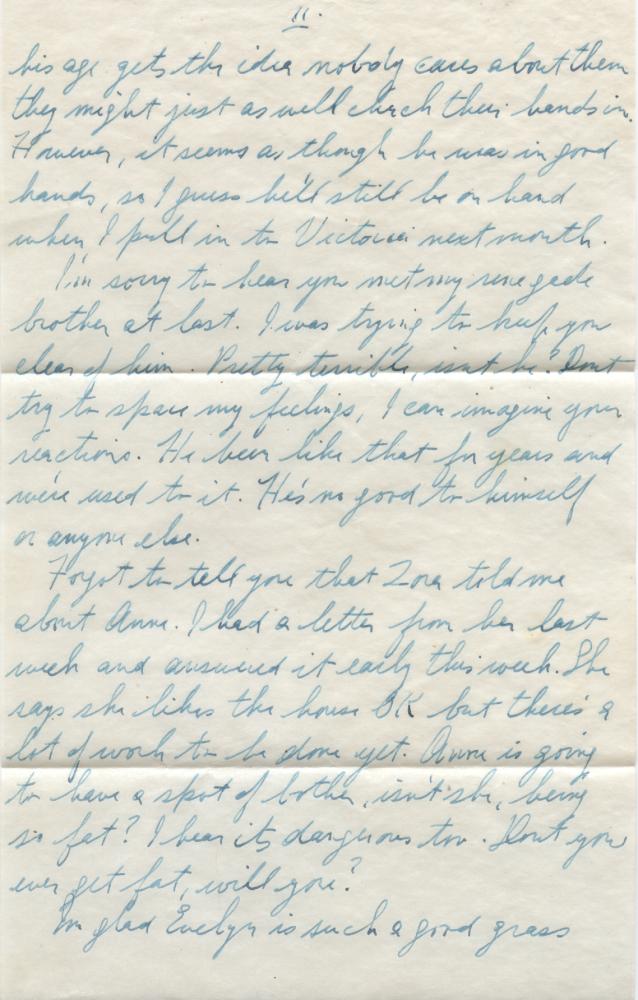 11.
his age gets the idea nobody cares about them
they might just as well check their hands in.
However, it seems as though he was in good
hands, so I guess he'll still be on hand
when I pull in to Victoria next month.
I'm sorry to hear you met my renegade
brother at last. I was trying to keep you
clear of him. Pretty terrible, isn't he? Don't
try to spare my feelings, I can imagine your
reactions. He been like that for years and
we're used to it. He's no good to himself
or anyone else.
Forgot to tell you that Zora told me
about Anne. I had a letter from her last
week and answered it early this week. She
says she likes the house OK but there's a
lot of work to be done yet. Anne is going
to have a spot of bother, isn't she, being
so fat? I hear its dangerous too. Don't you
ever get fat, will you?
I'm glad Evelyn is such a good grass